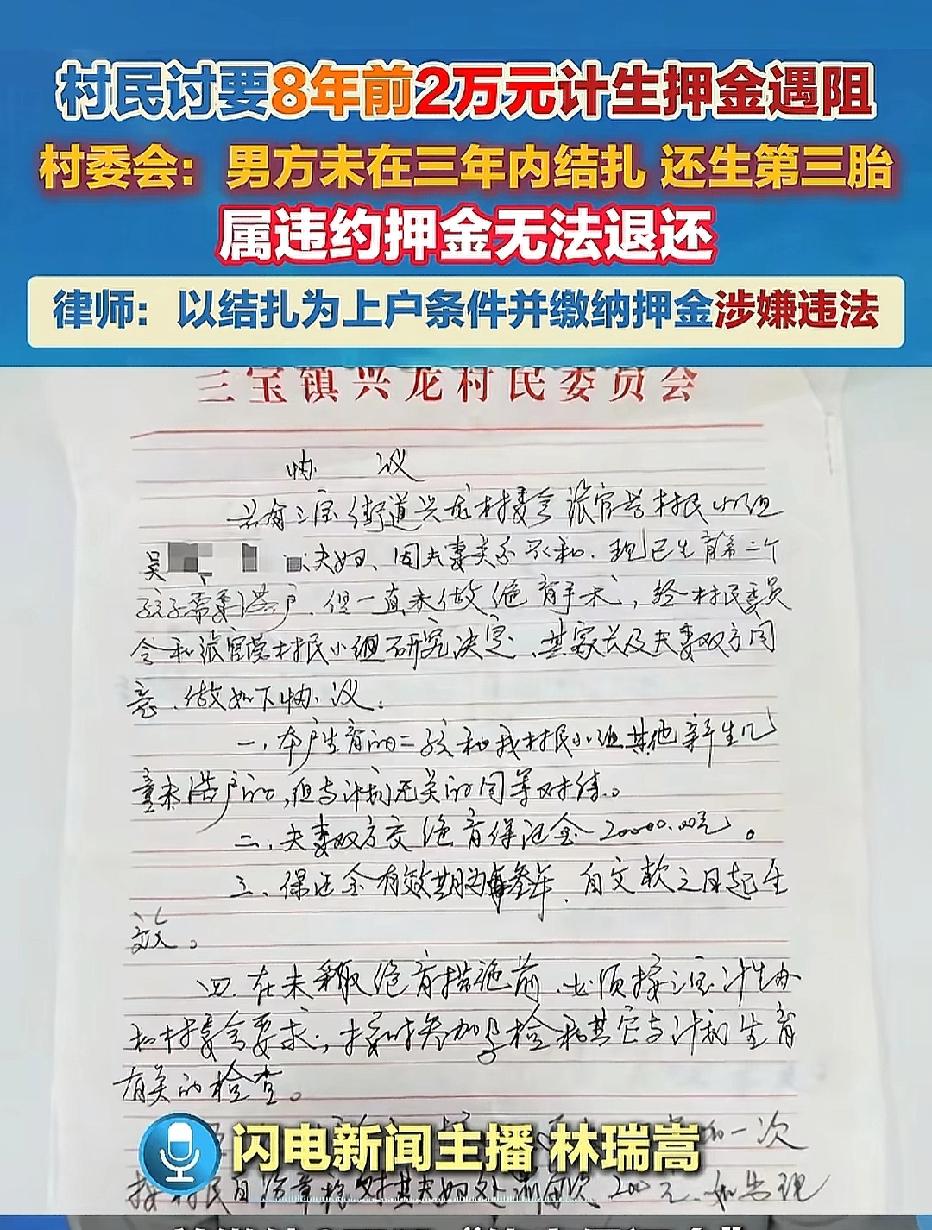 村民讨要8年前2万元计生押金遇阻
村委会：男方未在三年内结扎 还生第三胎
属违约押金无法退还
律师：以结扎为上户条件并缴纳押金涉嫌违法
三宝镇兴龙村民委员会
协 议
兹有三宝街道兴龙村委会张官营村民小组
吴 夫妇、因夫妻关系不和.现已生育第二个
孩子需要落户.但一直未做绝育手术，经村民委员
会和张官营村民小组研究决定.其家长及夫妻双方同
意.做如下协议.
一，本户生育的二孩和我村民小组其他新生儿
童未落户的，但与计划无关的同等对待。
二、夫妻双方交绝育保证金20000.00元。
三、保证金有效期为叁年.自交款之日起生
效。
四.在未采取绝育措施前.必须按三宝计生办
和村委会要求，按时参加孕检和其它与计划生育
有关的检查。
和一次
闪电新闻主播 林瑞嵩
按村民自治章程对其夫妇处罚每次200元.如发现